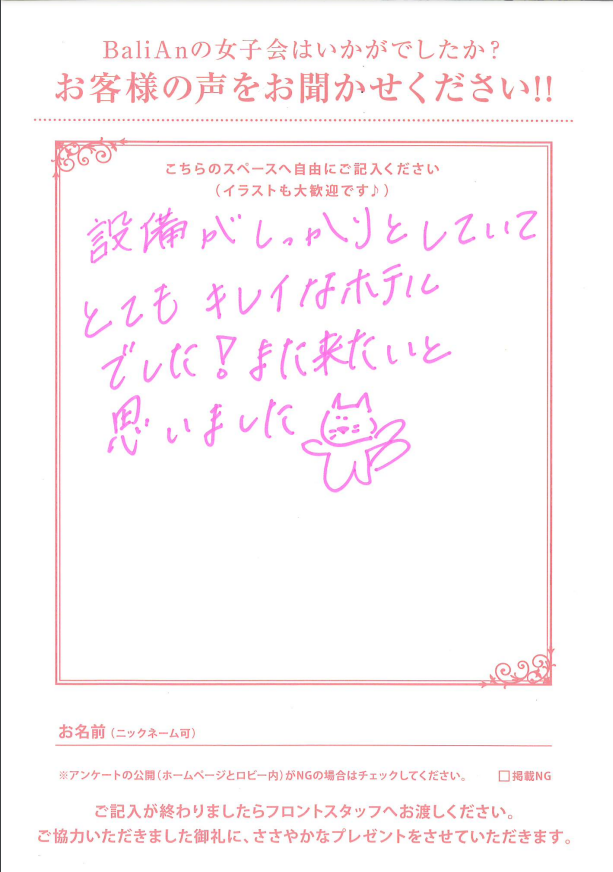 BaliAnの女子会はいかがでしたか?
お客様の声をお聞かせください!!
こちらのスペースへ自由にご記入ください
(イラストも大歓迎です♪)
設備がしっかりとしていて
とてもキレイなホテル
でした!また来たいと
思いました
お名前(ニックネーム可)
※アンケートの公開(ホームページとロビー内)がNGの場合はチェックしてください。 □掲載NG
ご記入が終わりましたらフロントスタッフへお渡しください。
ご協力いただきました御礼に、ささやかなプレゼントをさせていただきます。